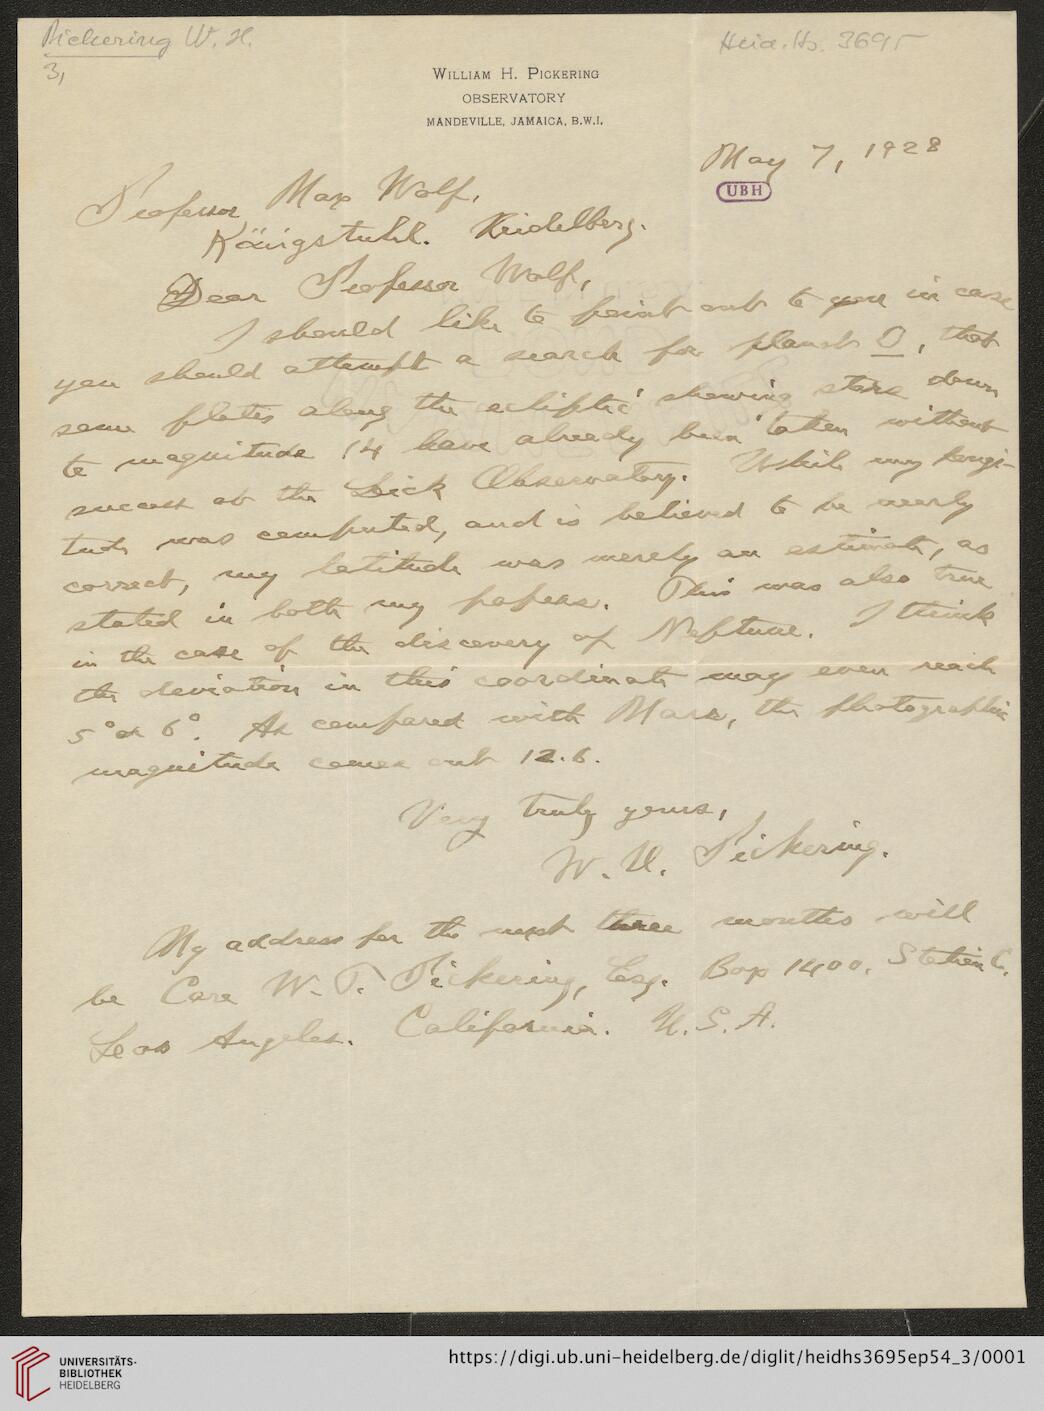 Pickering W. H.
Heid. Hs. 3695
3,
WILLIAM H. PICKERING
OBSERVATORY
MANDEVILLE, JAMAICA, B.W.I.
May 7, 1928
UBH
Professor Max Wolf,
Königstuhl. Heidelberg.
Dear Professor Wolf,
I should like to point out to you in case
you should attempt a search for planet O, that
some plates along the ecliptic showing stars down
to magnitude 14 have already been taken without
success at the Lick Observatory. While my longi-
tude was computed, and is believed to be nearly
correct, my latitude was merely an estimate, as
stated in both my papers. This was also true
in the case of the discovery of Neptune. I think
the deviation in this coordinate may even reach
5° or 6°. As compared with Mars, the photographic
magnitude comes out 12.6.
Very truly yours,
W. H. Pickering.
My address for the next three months will
be Care W. T. Pickering, Esq. Box 1400, Station C,
Los Angeles. California. U.S.A.
UNIVERSITÄTS-
BIBLIOTHEK
HEIDELBERG
https://digi.ub.uni-heidelberg.de/diglit/heidhs3695ep54_3/0001